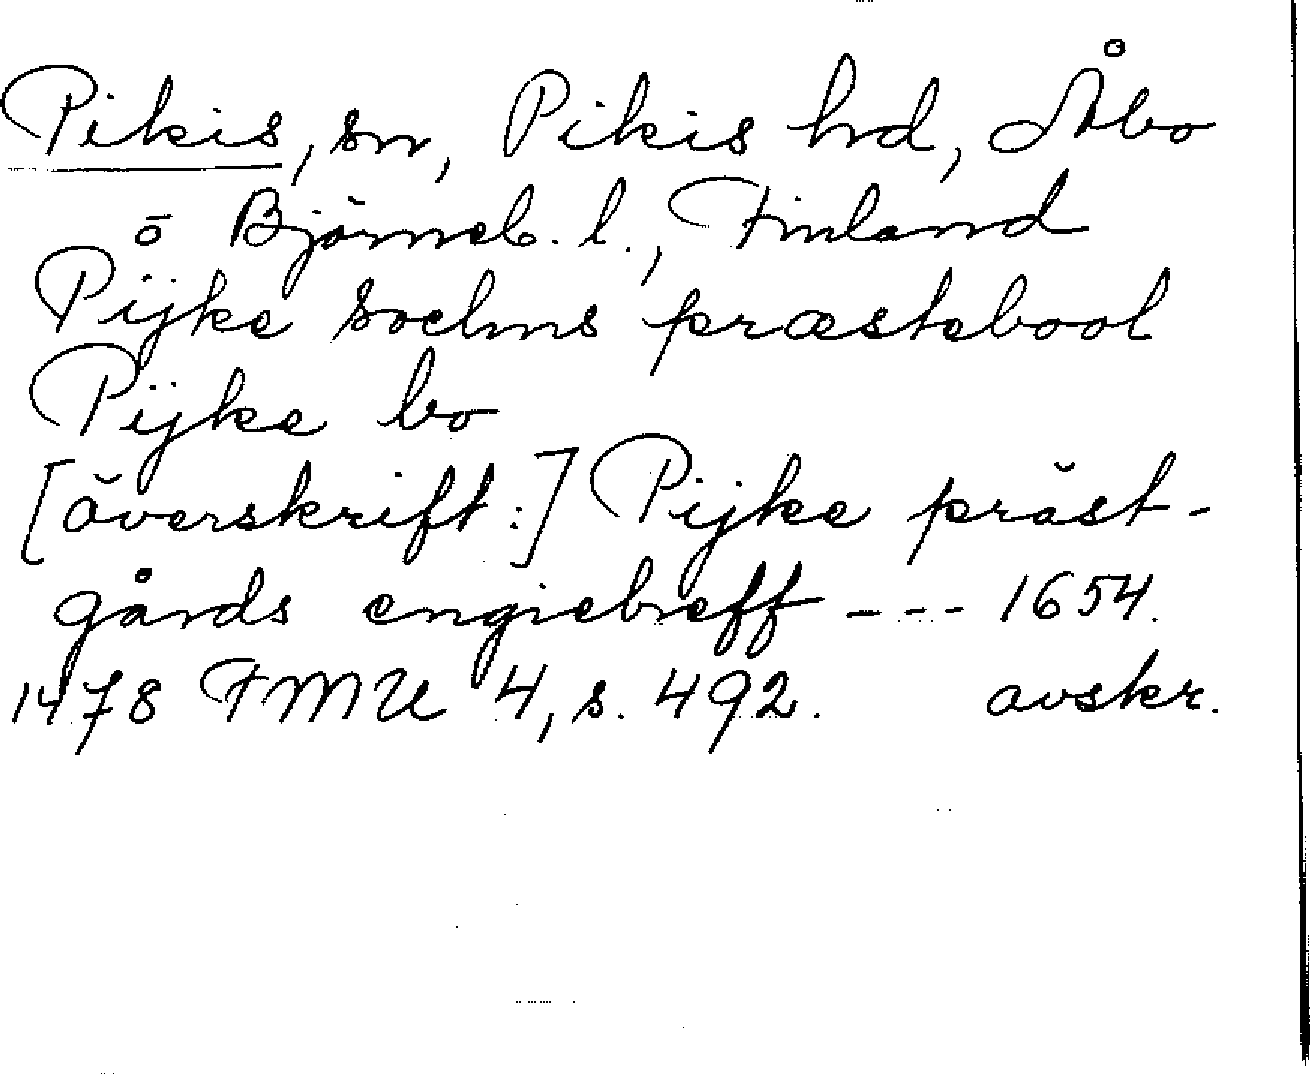 Pikis, sn, Pikis hd, Åbo
o Björneb. l., Finland
Pijke sochns præstebool
Pijke bo
[överskrift:] Pijke präst-
gårds engiebreff --- 1654.
1478 FMU 4, s. 492. avskr.